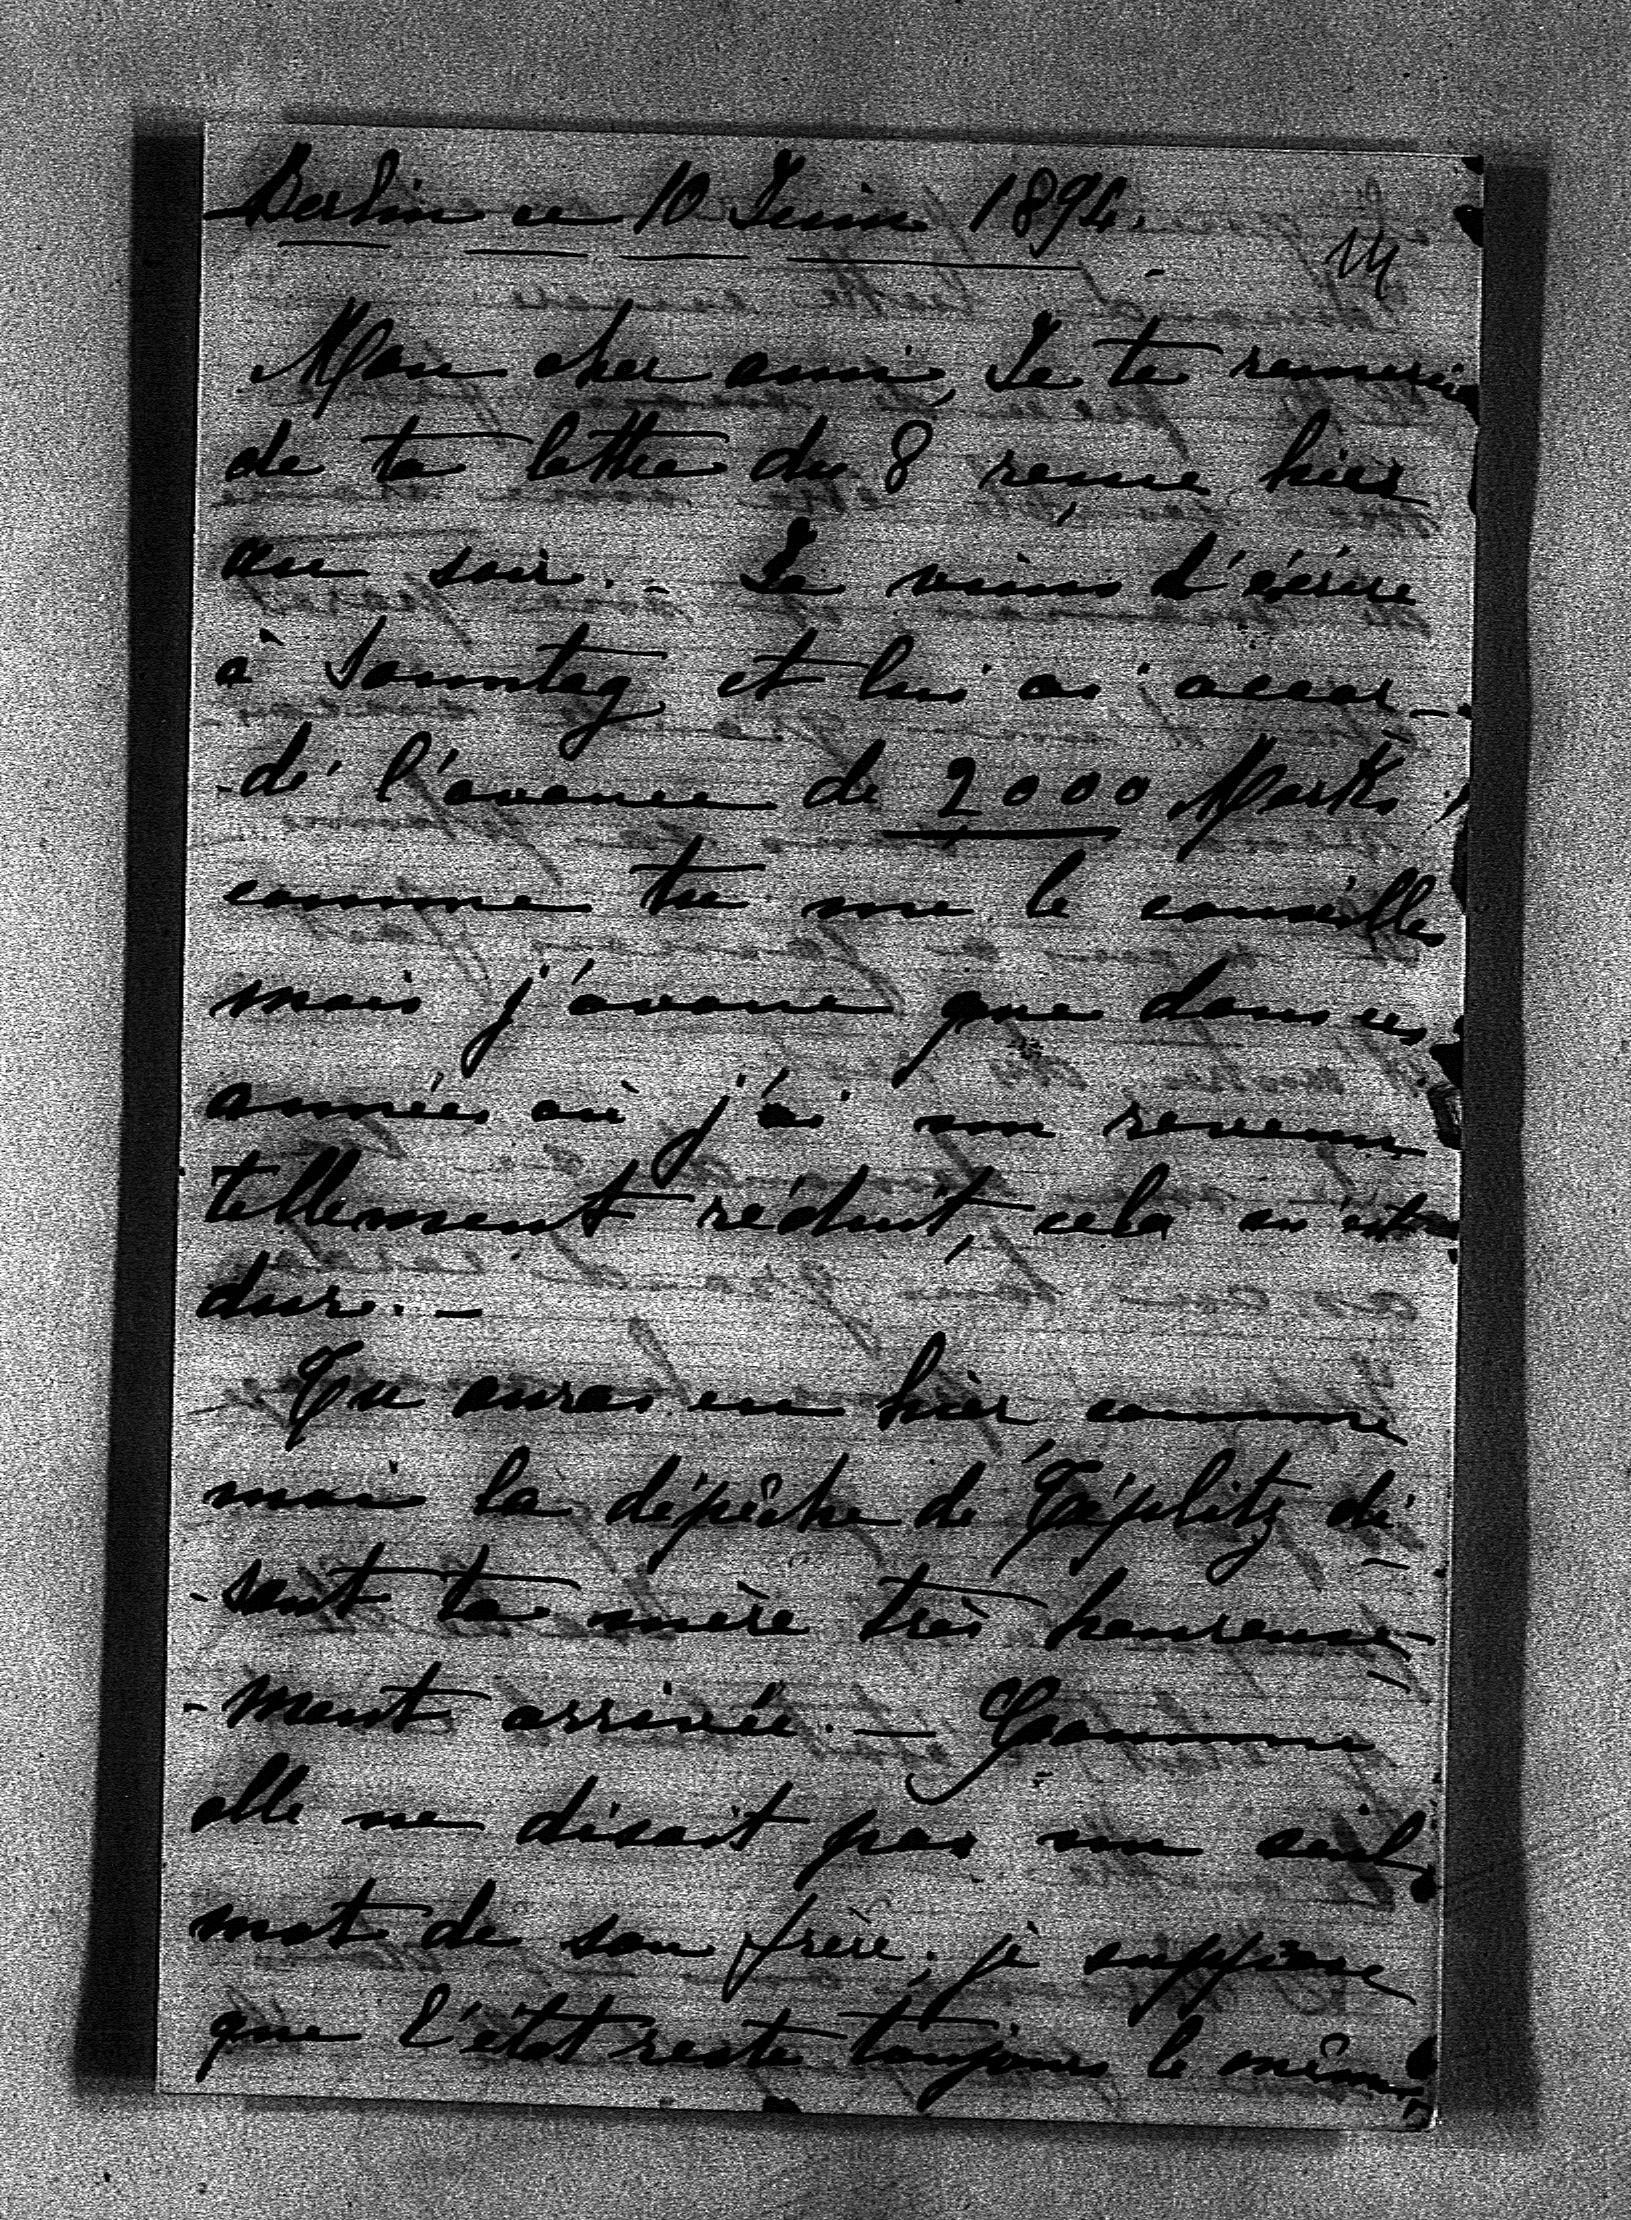 Berlin ce 10 Juin 1894.
Mon cher ami, Je te remercie
de ta lettre du 8 reçue hier
au soir. – Je viens d'écrire
à Sonntag et lui ai accor-
-dé l'avance de 2000 Marks,
comme tu me le conseilles
mais j'avoue que dans ces
années où j'ai mon revenu
tellement réduit, cela m'est
dur. –
Tu auras eu hier, comme
moi la dépêche de Téplitz di-
-sant ta mère très heureuse-
-ment arrivée. – Comme
elle ne disait pas un seul
mot de son frère, je suppose
que l'état reste toujours le même